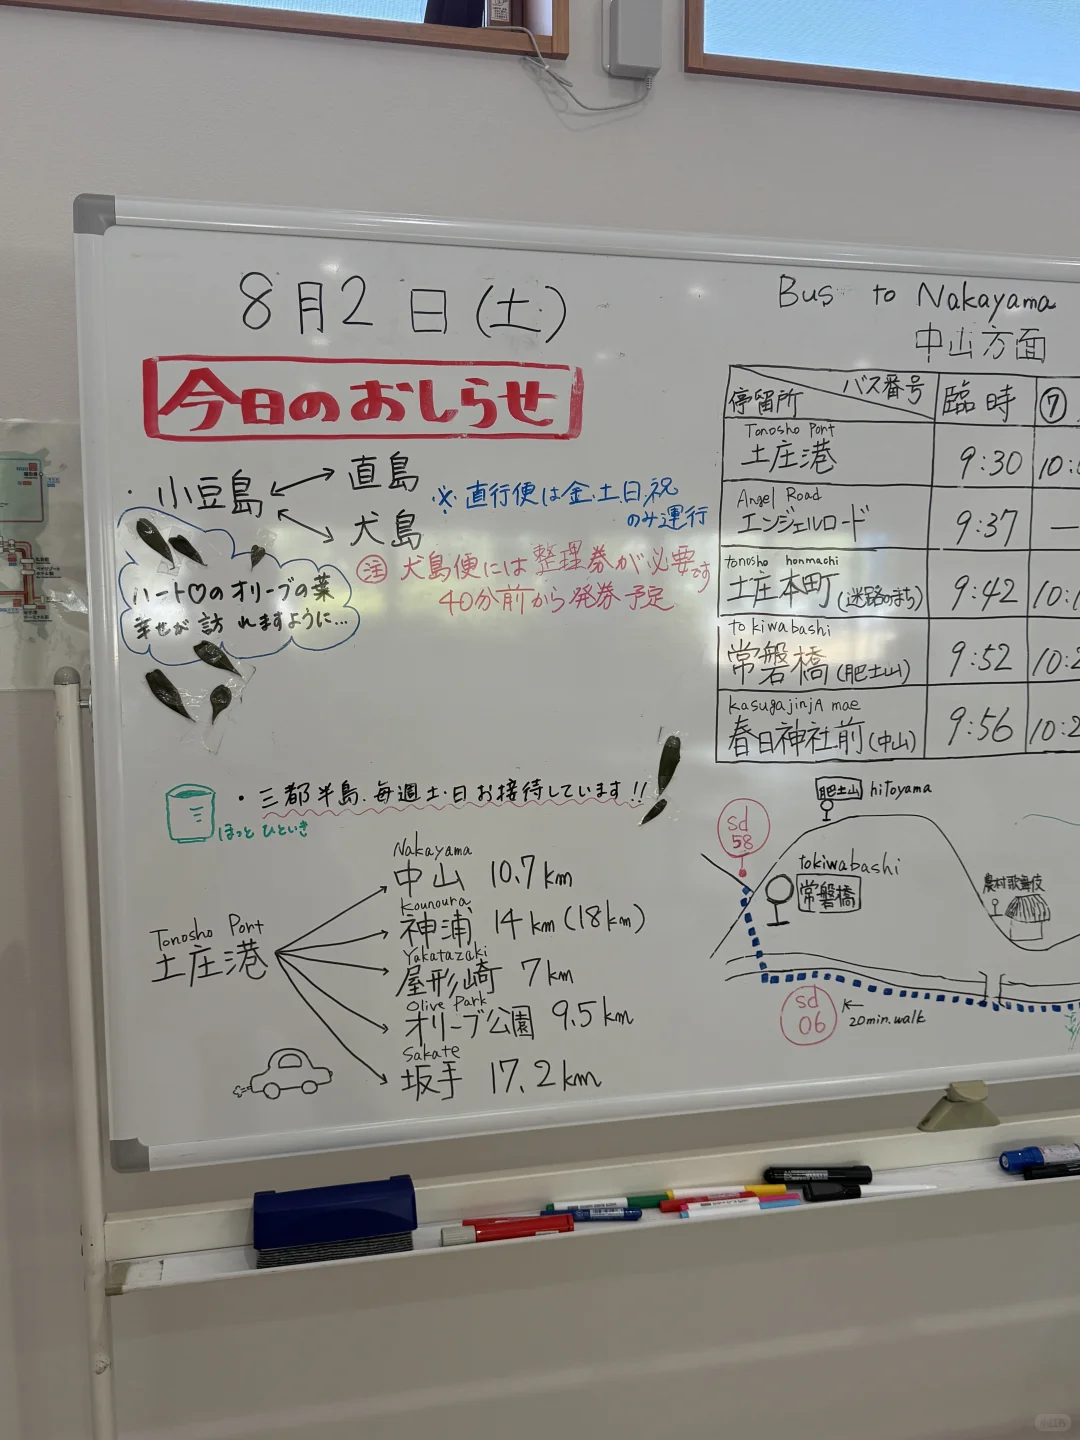 8月2日(土)
今日のおしらせ
・小豆島
直島
犬島
※直行便は金.土.日.祝
のみ運行
注 犬島便には整理券が必要です
40分前から発券予定
ハート♡のオリーブの葉
幸せが訪れますように…
・三都半島.毎週土・日お接待しています!!
ほっとひといき
Tonosho Port
土庄港
Nakayama
中山 10.7km
Kounoura
神浦 14km(18km)
Yakatazaki
屋形崎 7km
Olive Park
オリーブ公園 9.5km
Sakate
坂手 17.2km
Bus to Nakayama
中山方面
停留所 バス番号 臨時 ⑦
Tonosho Port
土庄港 9:30 10:
Angel Road
エンジェルロード 9:37 —
tonosho honmachi
土庄本町(迷路のまち) 9:42 10:1
tokiwabashi
常磐橋(肥土山) 9:52 10:2
kasugajinjA mae
春日神社前(中山) 9:56 10:2
肥土山 hitoyama
sd
58
tokiwabashi
常磐橋
農村歌舞伎
sd
06
←20min.walk